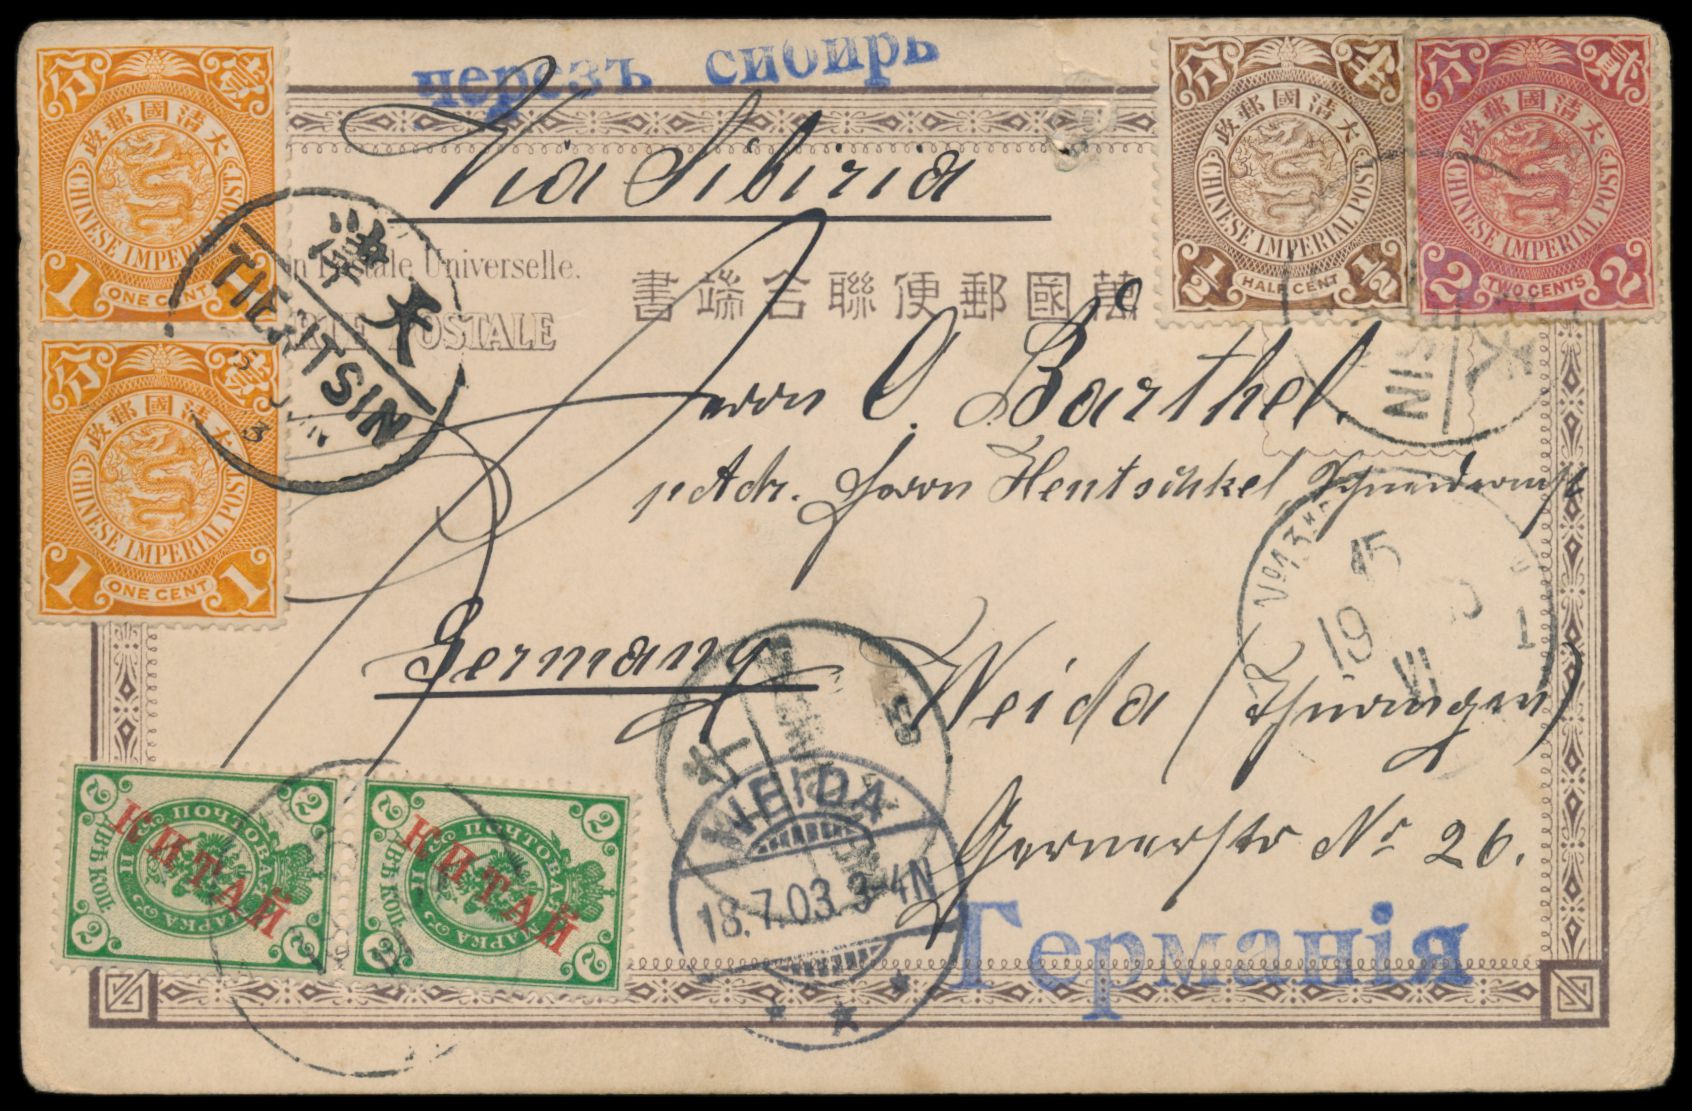 черезъ сибирь
Via Sibiria
分 壹
大清國郵政
CHINESE IMPERIAL POST
1 ONE CENT
分 壹
大清國郵政
CHINESE IMPERIAL POST
1 ONE CENT 1
分 半
大清國郵政
CHINESE IMPERIAL POST
1/2 HALF CENT 1/2
分 貳
大清國郵政
CHINESE IMPERIAL POST
2 TWO CENTS 2
天津
TIENTSIN
Postale Universelle.
萬國郵便聯合端書
POSTALE
Herrn O. Barthel.
p. Adr. Herrn Hentschkel
Germany
Weida (Thüringen)
Gernerstr No 26.
SIN
15
19
VI
WEIDA
18.7.03.3-4N
2 2
ПОЧТОВАЯ МАРКА
ДВѢ КОП.
КИТАЙ
2 2
2 2
ПОЧТОВАЯ МАРКА
ДВѢ КОП.
КИТАЙ
2 2
Германія